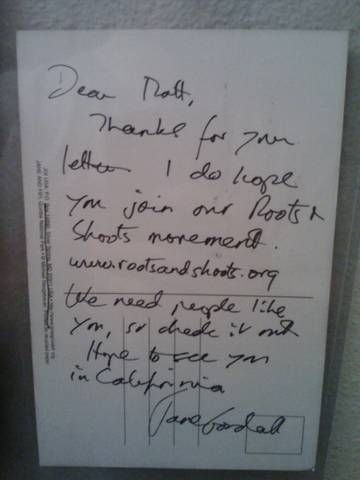 Dear Matt,
Thanks for your
letter I do hope
you join our Roots &
Shoots movement.
www.rootsandshoots.org
We need people like
you, so check it out
Hope to see you
in California
Jane Goodall